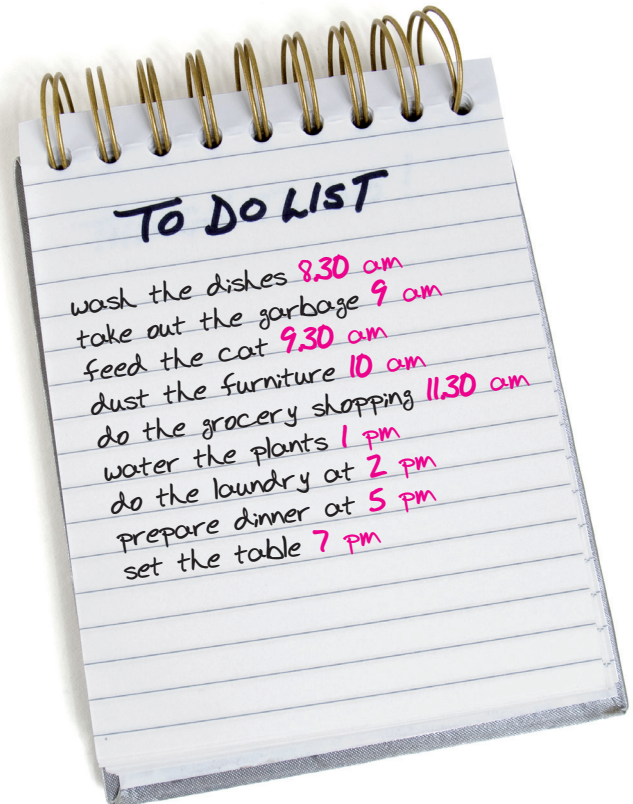 TO DO LIST
wash the dishes 8.30 am
take out the garbage 9 am
feed the cat 9.30 am
dust the furniture 10 am
do the grocery shopping 11.30 am
water the plants 1 pm
do the laundry at 2 pm
prepare dinner at 5 pm
set the table 7 pm